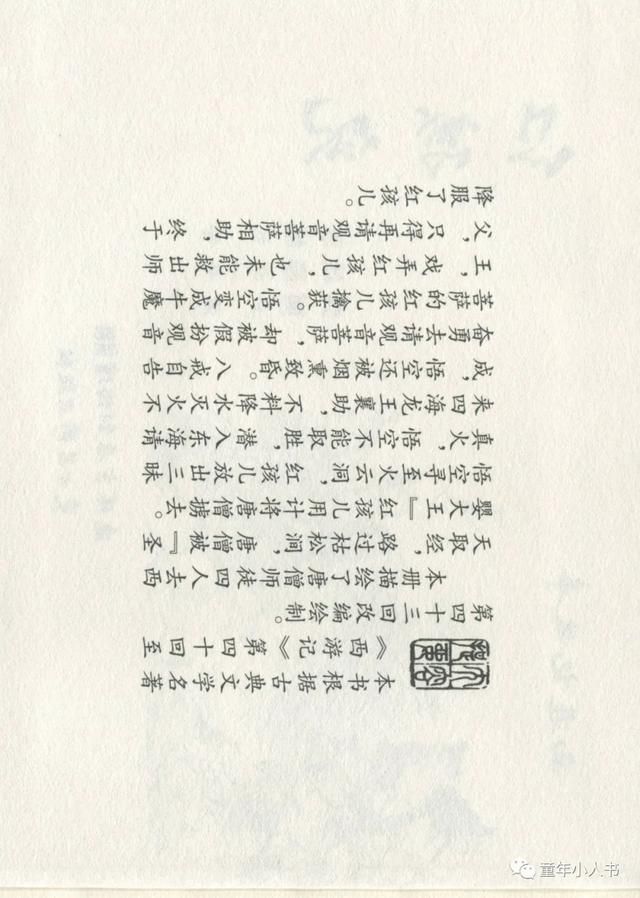 本书根据古典文学名著
《西游记》第四十回至
第四十三回改编绘制。
本册描绘了唐僧师徒四人去西
天取经，路过枯松涧，唐僧被『圣
婴大王』红孩儿用计将唐僧掳去。
悟空寻至火云洞，红孩儿放出三昧
真火，悟空不能取胜，潜入东海请
来四海龙王襄助，不料降水灭火不
成，悟空还被烟熏致昏。八戒自告
奋勇去请观音菩萨，却被假扮观音
菩萨的红孩儿擒获。悟空变成牛魔
王，戏弄红孩儿，也未能救出师
父，只得再请观音菩萨相助，终于
降服了红孩儿。
童年小人书